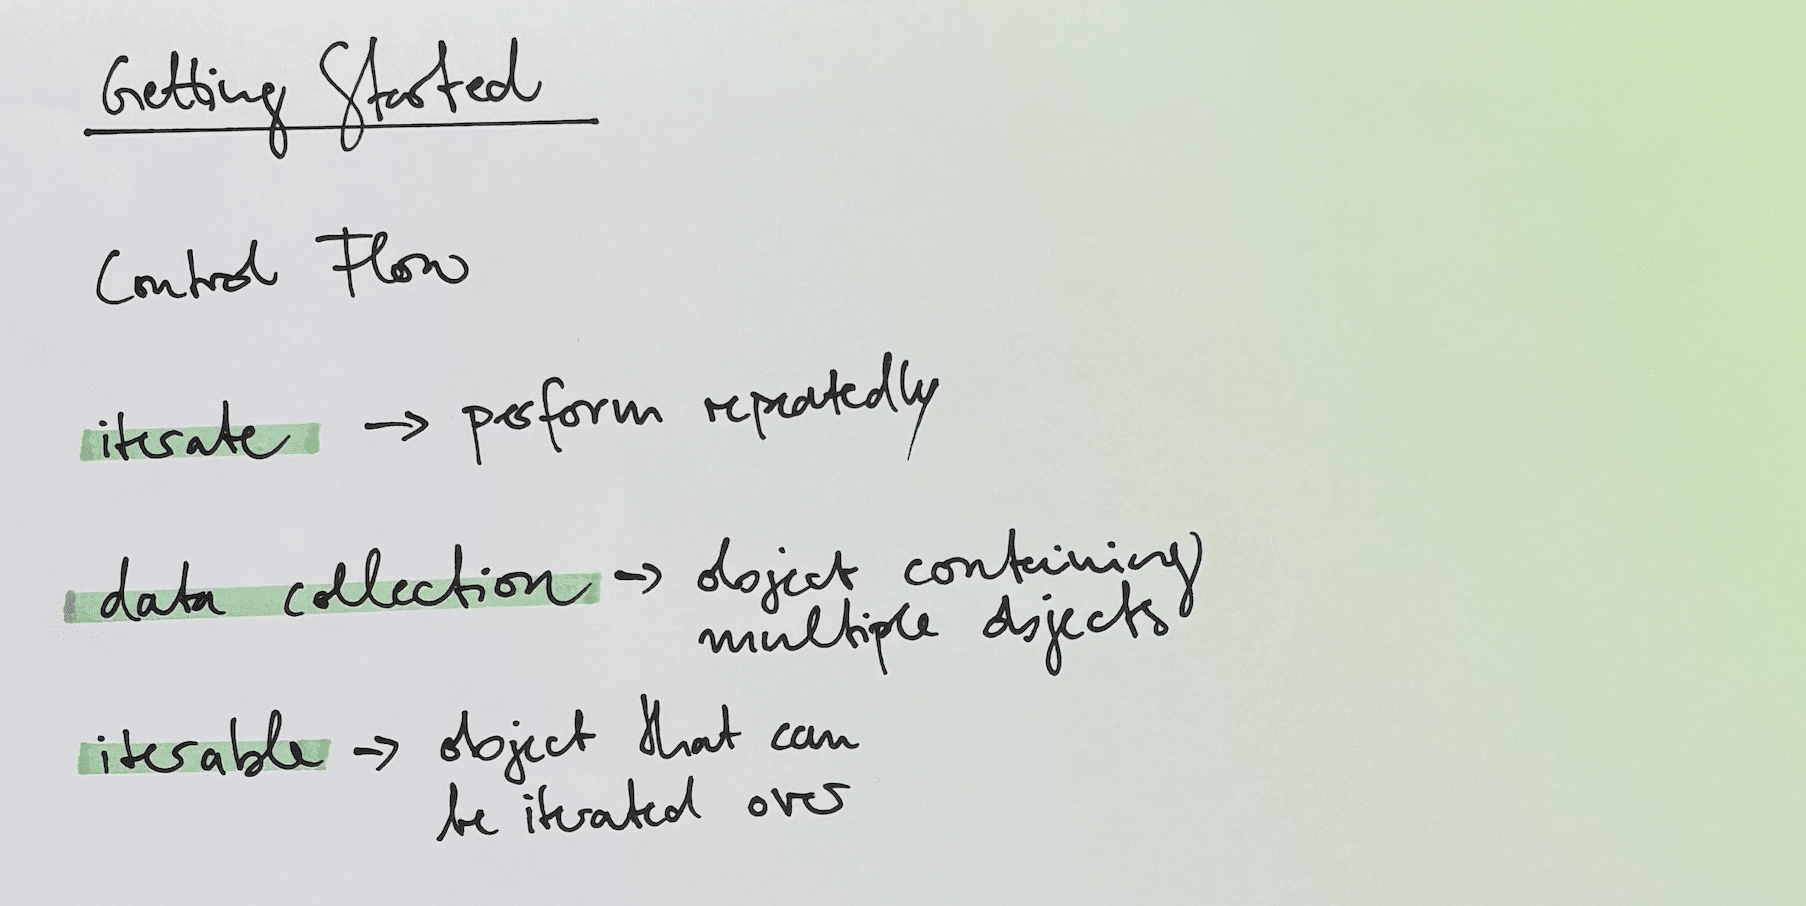 Getting Started
Control Flow
iterate → perform repeatedly
data collection → object containing
multiple objects
iterable → object that can
be iterated over